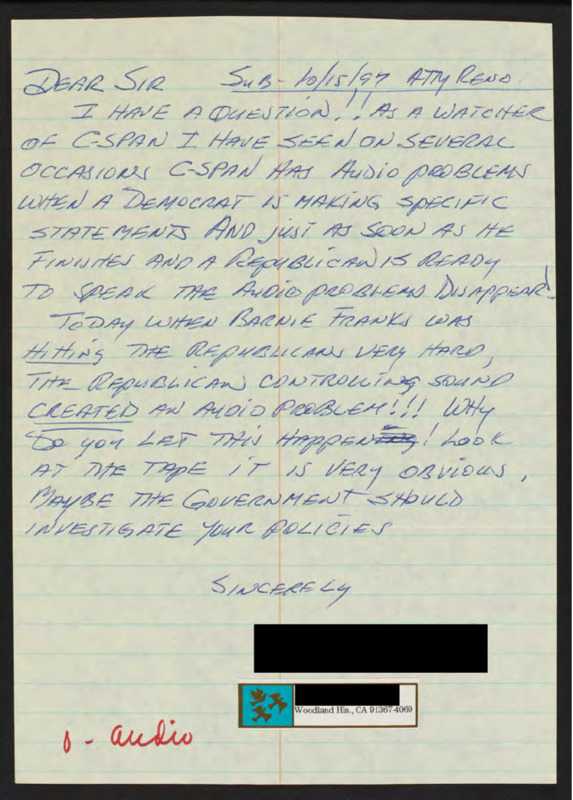 DEAR SIR SUB- 10/15/97 ATTY RENO
I HAVE A QUESTION!! AS A WATCHER
OF C-SPAN I HAVE SEEN ON SEVERAL
OCCASIONS C-SPAN HAS AUDIO PROBLEMS
WHEN A DEMOCRAT IS MAKING SPECIFIC
STATEMENTS AND JUST AS SOON AS HE
FINISHES AND A REPUBLICAN IS READY
TO SPEAK THE AUDIO PROBLEMS DISAPPEAR!
TODAY WHEN BARNIE FRANKS WAS
HITTING THE REPUBLICANS VERY HARD,
THE REPUBLICAN CONTROLLING SOUND
CREATED AN AUDIO PROBLEM!!! WHY
DO YOU LET THIS HAPPEN! LOOK
AT THE TAPE IT IS VERY OBVIOUS,
MAYBE THE GOVERNMENT SHOULD
INVESTIGATE YOUR POLICIES
SINCERELY
Woodland Hls., CA 91367-4069
0 - audio